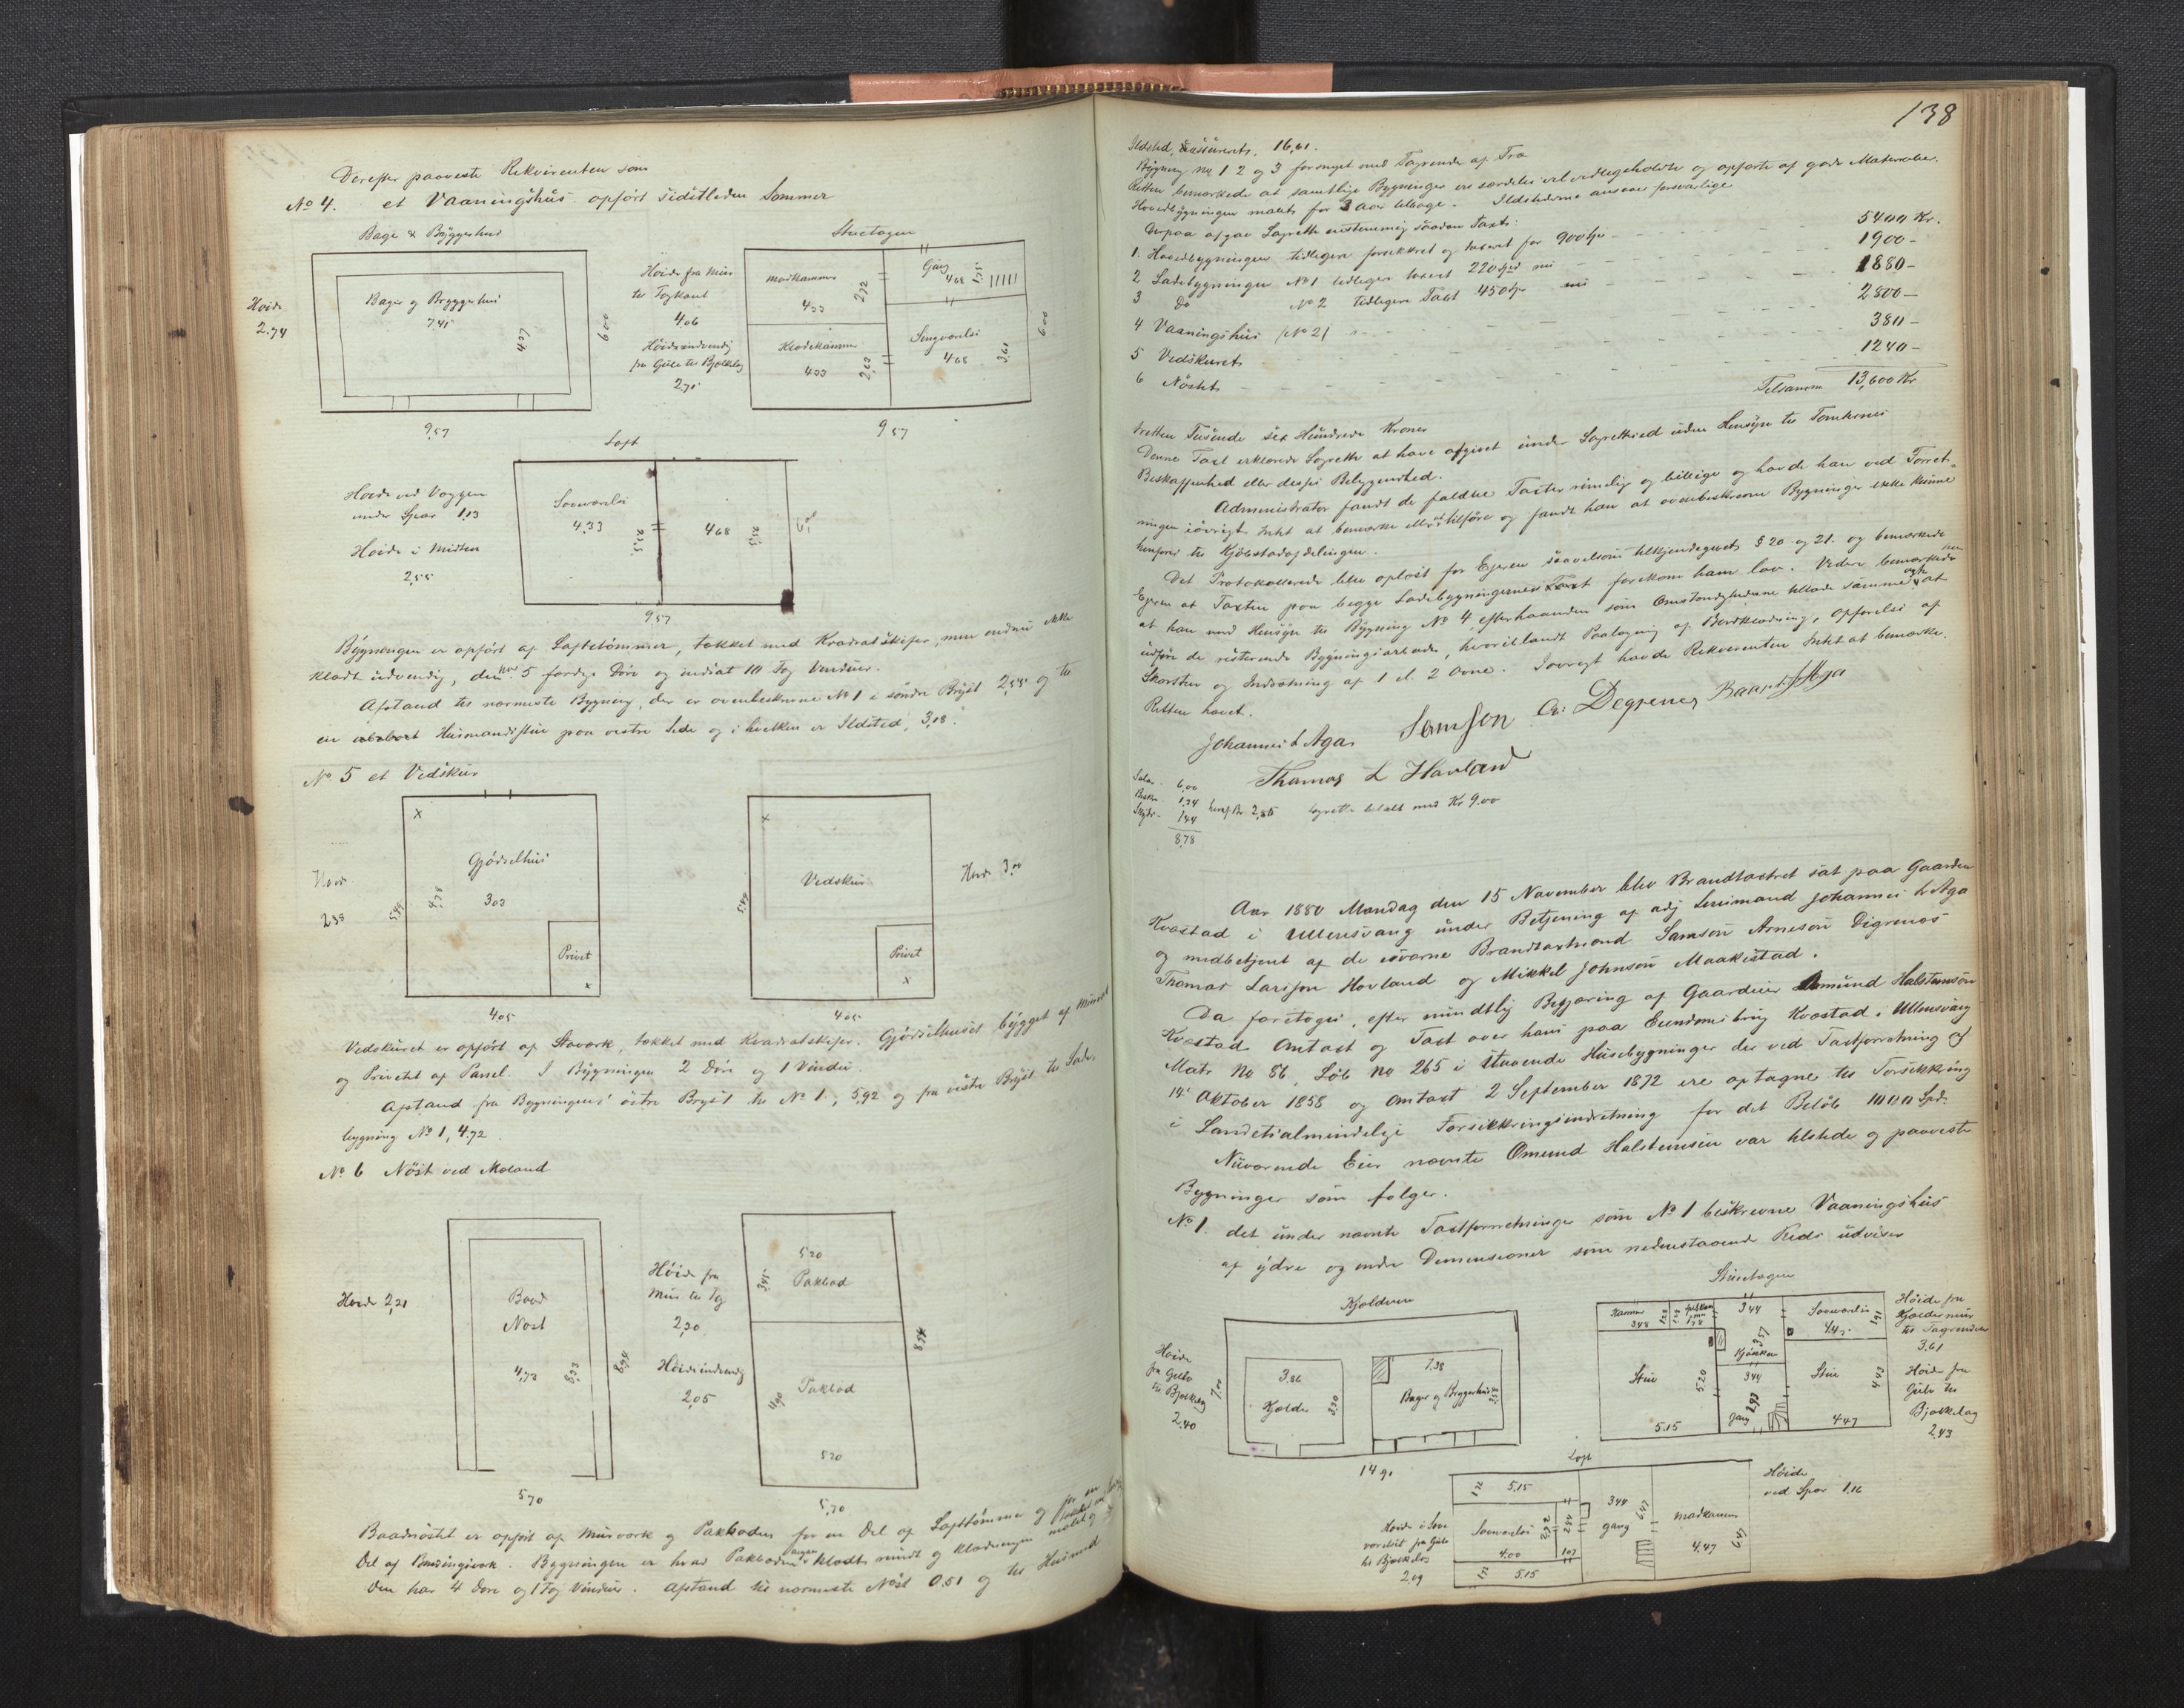 Derefter paaviste Rekvirenten som
No 4. et Vaaningshus opført sidstleden Sommer
Bage & Bryggerhus
Stuetagen
Høide
2.74
Bager og Bryggerhus
7.41
4.37
6.00
9.57
Høide fra Mur
til Tagkant
4.06
Høide indvendig
fra Gulv til Bjælkelag
2.71
madkammer
4.33
2.72
Gang
4.68
1.75
Klædekammer
4.33
2.63
Sengværelse
4.68
3.61
6.00
9.57
Loft
Høide ved Væggen
under Spær 1.13
Høide i Midten
2.55
Soveværelse
4.33
4.68
9.57
Bygningen er opført af Laftetømmer, tækket med Kvadratskifer, men endnu ikke
klædt udvendig, den har 5 færdige Døre og indsat 10 Fag Vinduer.
Afstand til nærmeste Bygning, der er ovenbeskrevne No 1 i søndre Bryst 2,55 og til
en Husmandsstue paa vestre Side og i hvilken er Ildsted, 3,18.
No 5 et Vedskur
Høide
2.38
Gjødselhus
3.03
4.78
5.49
Privet
4.05
Vedskur
5.49
Privet
4.05
Høide 3.00
Vedskuret er opført af Stavværk, tækket med Kvadratskifer. Gjødselhuset bygget af Mursten
og Privetet af Panel. I Bygningen 2 Døre og 1 Vindu.
Afstand fra Bygningens østre Bryst til No 1, 5,92 og fra vestre Bryst til Lade-
bygning No 1, 4.72.
No 6 Nøst ved Moland
Høide 2,21
Baad
Nøst
4,73
8.33
8,94
5.70
Høide fra
Mur til Tag
2,30
Høide indvendig
2,05
5.20
Pakbod
3.45
Pakbod
4.90
5.20
8,94
5,70
Baadnøstet er opført af Murværk og Pakboden for en Del af Lafttømmer og for en
Del af Bindingsværk. Bygningen er hvad Pakboden angaar klædt rundt og klædningen malet og
Den har 4 Døre og 1 Fag Vinduer. Afstand til nærmeste Nøst 0.51 og til Huset med
138
Ildsted, 16,61.
Bygning No 1 2 og 3 forsynet med Tagrender af Træ
Retten bemærkede at samtlige Bygninger ere særdeles vel vedligeholdte og opførte af gode Materialer.
Hovedbygningen malet for 3 Aar tilbage. Ildstederne ansees forsvarlige
Derpaa afgav Lagrette enstemmig saadan Taxt:
1. Hovedbygningen tidligere forsikkret og taxeret for 900 Spd 5400 Kr.
2 Ladebygningen No 1 tidligere taxeret 220 Spd nu 1900 -
3 Do No 2 tidligere Taxt 450 Spd nu 1880 -
4 Vaaningshus (No 2) 2800 -
5 Vedskuret 380 -
6 Nøstet 1240 -
Tilsammen 13,600 Kr
tretten Tusinde sex Hundrede Kroner
Denne Taxt erklærede Lagrette at have afgivet under Lagretteed uden Hensyn til Tomternes
Beskaffenhed eller dessen Beliggenhed.
Administrator fandt de faldne Taxter rimelige og billige og havde han ved Forret-
ningen iøvrigt Intet at bemærke eller at tilføie og fandt han at ovenbeskrevne Bygninger ikke kunne
henføres til Kjøbstadafdelingen.
Det Protokollerede blev oplæst for Eieren saavelsom tilkjendegivet § 20 og 21. og bemærkede
Eieren at Taxten paa begge Ladebygningernes Taxt forekom ham lav. Videre bemærkede
at han med Hensyn til Bygning No 4 efterhaanden som Omstændighederne tillade samme agter at
udføre de resterende Bygningsarbeide, hvoriblandt Paalægning af Bordklædning, Opførelse af
Skorsten og Indsætning af 1 el. 2 Ovne. Iøvrigt havde Rekvirenten Intet at bemærke.
Retten hævet.
Johannes L Aga Samson A: Degrenes Baard J Aga
Thomas L Havland
Salær 6,00
Beskr. 1,34
Skyds 1,44
8,78
Lagrette betalt med Kr 9.00
Aar 1880 Mandag den 15 November blev Brandtaxtret sat paa Gaarden
Kvæstad i Ullensvang under Betjening af adj Lensmand Johannes L Aga
og medbetjent af de edsvorne Brandtaxtmænd Samson Arnesøn Digrenæs
Thomas Larssøn Hovland og Mikkel Johnsøn Maakestad.
Da foretoges, efter mundtlig Begjæring af Gaardeier Omund Halstensøn
Kvæstad Omtaxt og Taxt over hans paa Eiendomsbrug Kvæstad i Ullensvang
Matr No 86, Løb No 265 i staaende Husebygninger der ved Taxtforretning af
14de Oktober 1858 og Omtaxt 2 September 1872 ere optagne til Forsikkring
i Landets almindelige Forsikkringsindretning for det Beløb 1000 Spd.
Nuværende Eier nævnte Omund Halstensøn var tilstede og paaviste
Bygninger som følger.
No 1. det under nævnte Taxtforretninger som No 1 beskrevne Vaaningshus
af ydre og indre Dimensioner som nedenstaaende Rids udviser
Kjælderen
Stuetagen
Høide
fra Gulv
til Bjælkelag
2.40
7,00
3.86
Kjelder
3.30
7.38
Bager og Bryggerhus
14 90
Kammer
348
344
Soveværelse
4.47
1.91
Stue
5.20
5.15
Kjøkken
3.57
344
Gang
2.93
Stue
4.43
4.47
Høide fra
Kjældermur
til Tagrenden
3.61
Høide fra
Gulv til
Bjælkelag
2.43
Loft
Høide i Sove
værelset fra Gulv
til Bjælkelag
2.09
5.15
Soveværelse
4.00
107
5.15
344
gang
6.47
madkammer
4,47
6.47
Høide
ved Spær 1,16